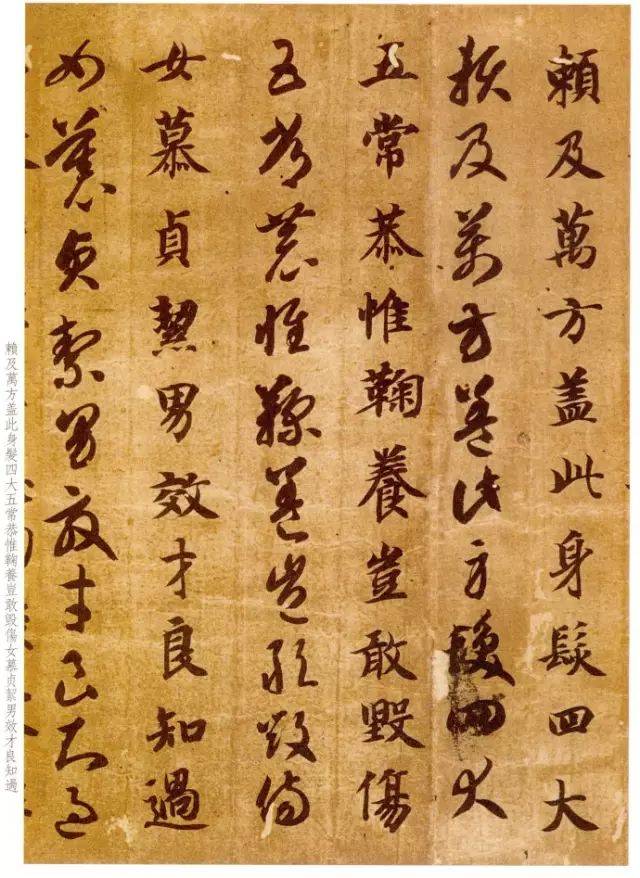 賴及萬方盖此身髮四大
賴及萬方盖此身髮四大
五常恭惟鞠養豈敢毀傷
五常恭惟鞠養豈敢毀傷
女慕貞絜男效才良知過
女慕貞絜男效才良知過
賴及萬方盖此身髮四大五常恭惟鞠養豈敢毀傷女慕貞絜男效才良知過